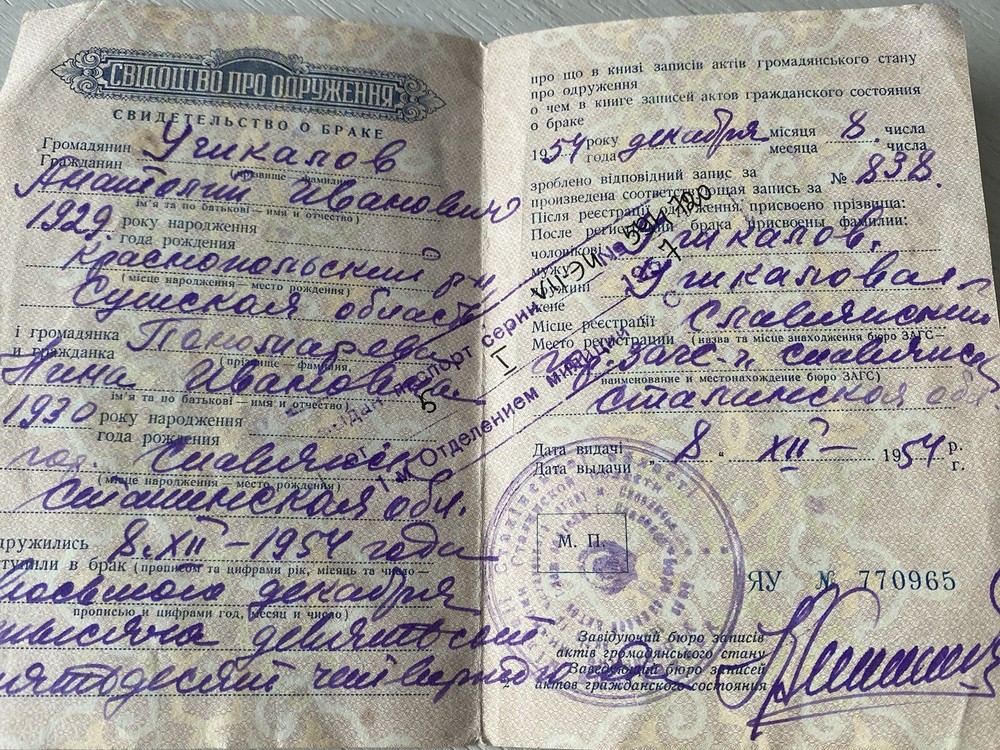 СВІДОЦТВО ПРО ОДРУЖЕННЯ
СВИДЕТЕЛЬСТВО О БРАКЕ
Громадянин
Гражданин Учкалов
(прізвище — фамилия)
Анатолий Иванович
ім'я та по батькові — имя и отчество)
1929 року народження
года рождения
Краснопольский р-н
(місце народження — место рождения)
Сумская область
і громадянка
и гражданка
(прізвище — фамилия,
Нина Ивановна
ім'я та по батькові — имя и отчество)
1930 року народження
года рождения
гор. Славянск
(місце народження — место рождения)
Сталинская обл.
дружились 8. XII — 1954 года
ступили в брак (прописом та цифрами рік, місяць та число —
восьмого декабря
прописью и цифрами год, месяц и число)
тысяча девятьсот
пятьдесят четвертого
про що в книзі записів актів громадянського стану
про одруження
о чем в книге записей актов гражданского состояния
о браке
1954 року декабря місяця 8. числа
года месяца числа
зроблено відповідний запис за
произведена соответствующая запись за № 838.
Після реєстрації одруження, присвоєно прізвища:
После регистрации брака присвоены фамилии:
чоловікові Учкалов.
мужу
дружині Учкаловая
жене
Місце реєстрації Славянский
Место регистрации (назва та місце знаходження бюро ЗАГС —
гор. ЗАГС г. Славянск
наименование и местонахождение бюро ЗАГС)
Сталинская обл
паспорт серии
I
5
Отделением милиции
Дата видачі
Дата выдачи „ 8 “ XII — 1954 р.
г.
М. П.
ЯУ № 770965
Завідуючий бюро записів
актів громадянського стану
Заведующий бюро записей
актов гражданского состояния